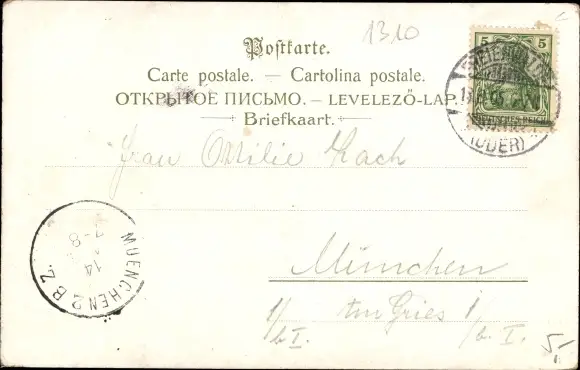 1310
Postkarte.
Carte postale. — Cartolina postale.
ОТКРЫТОЕ ПИСЬМО. — LEVELEZŐ-LAP.
Briefkaart.
5 5
DEUTSCHES REICH
(ODER)
Frau Ottilie
München
Am Gries 1
1/b I.
/b. I.
MUENCHEN 2 B.Z.
14
7-8
5.